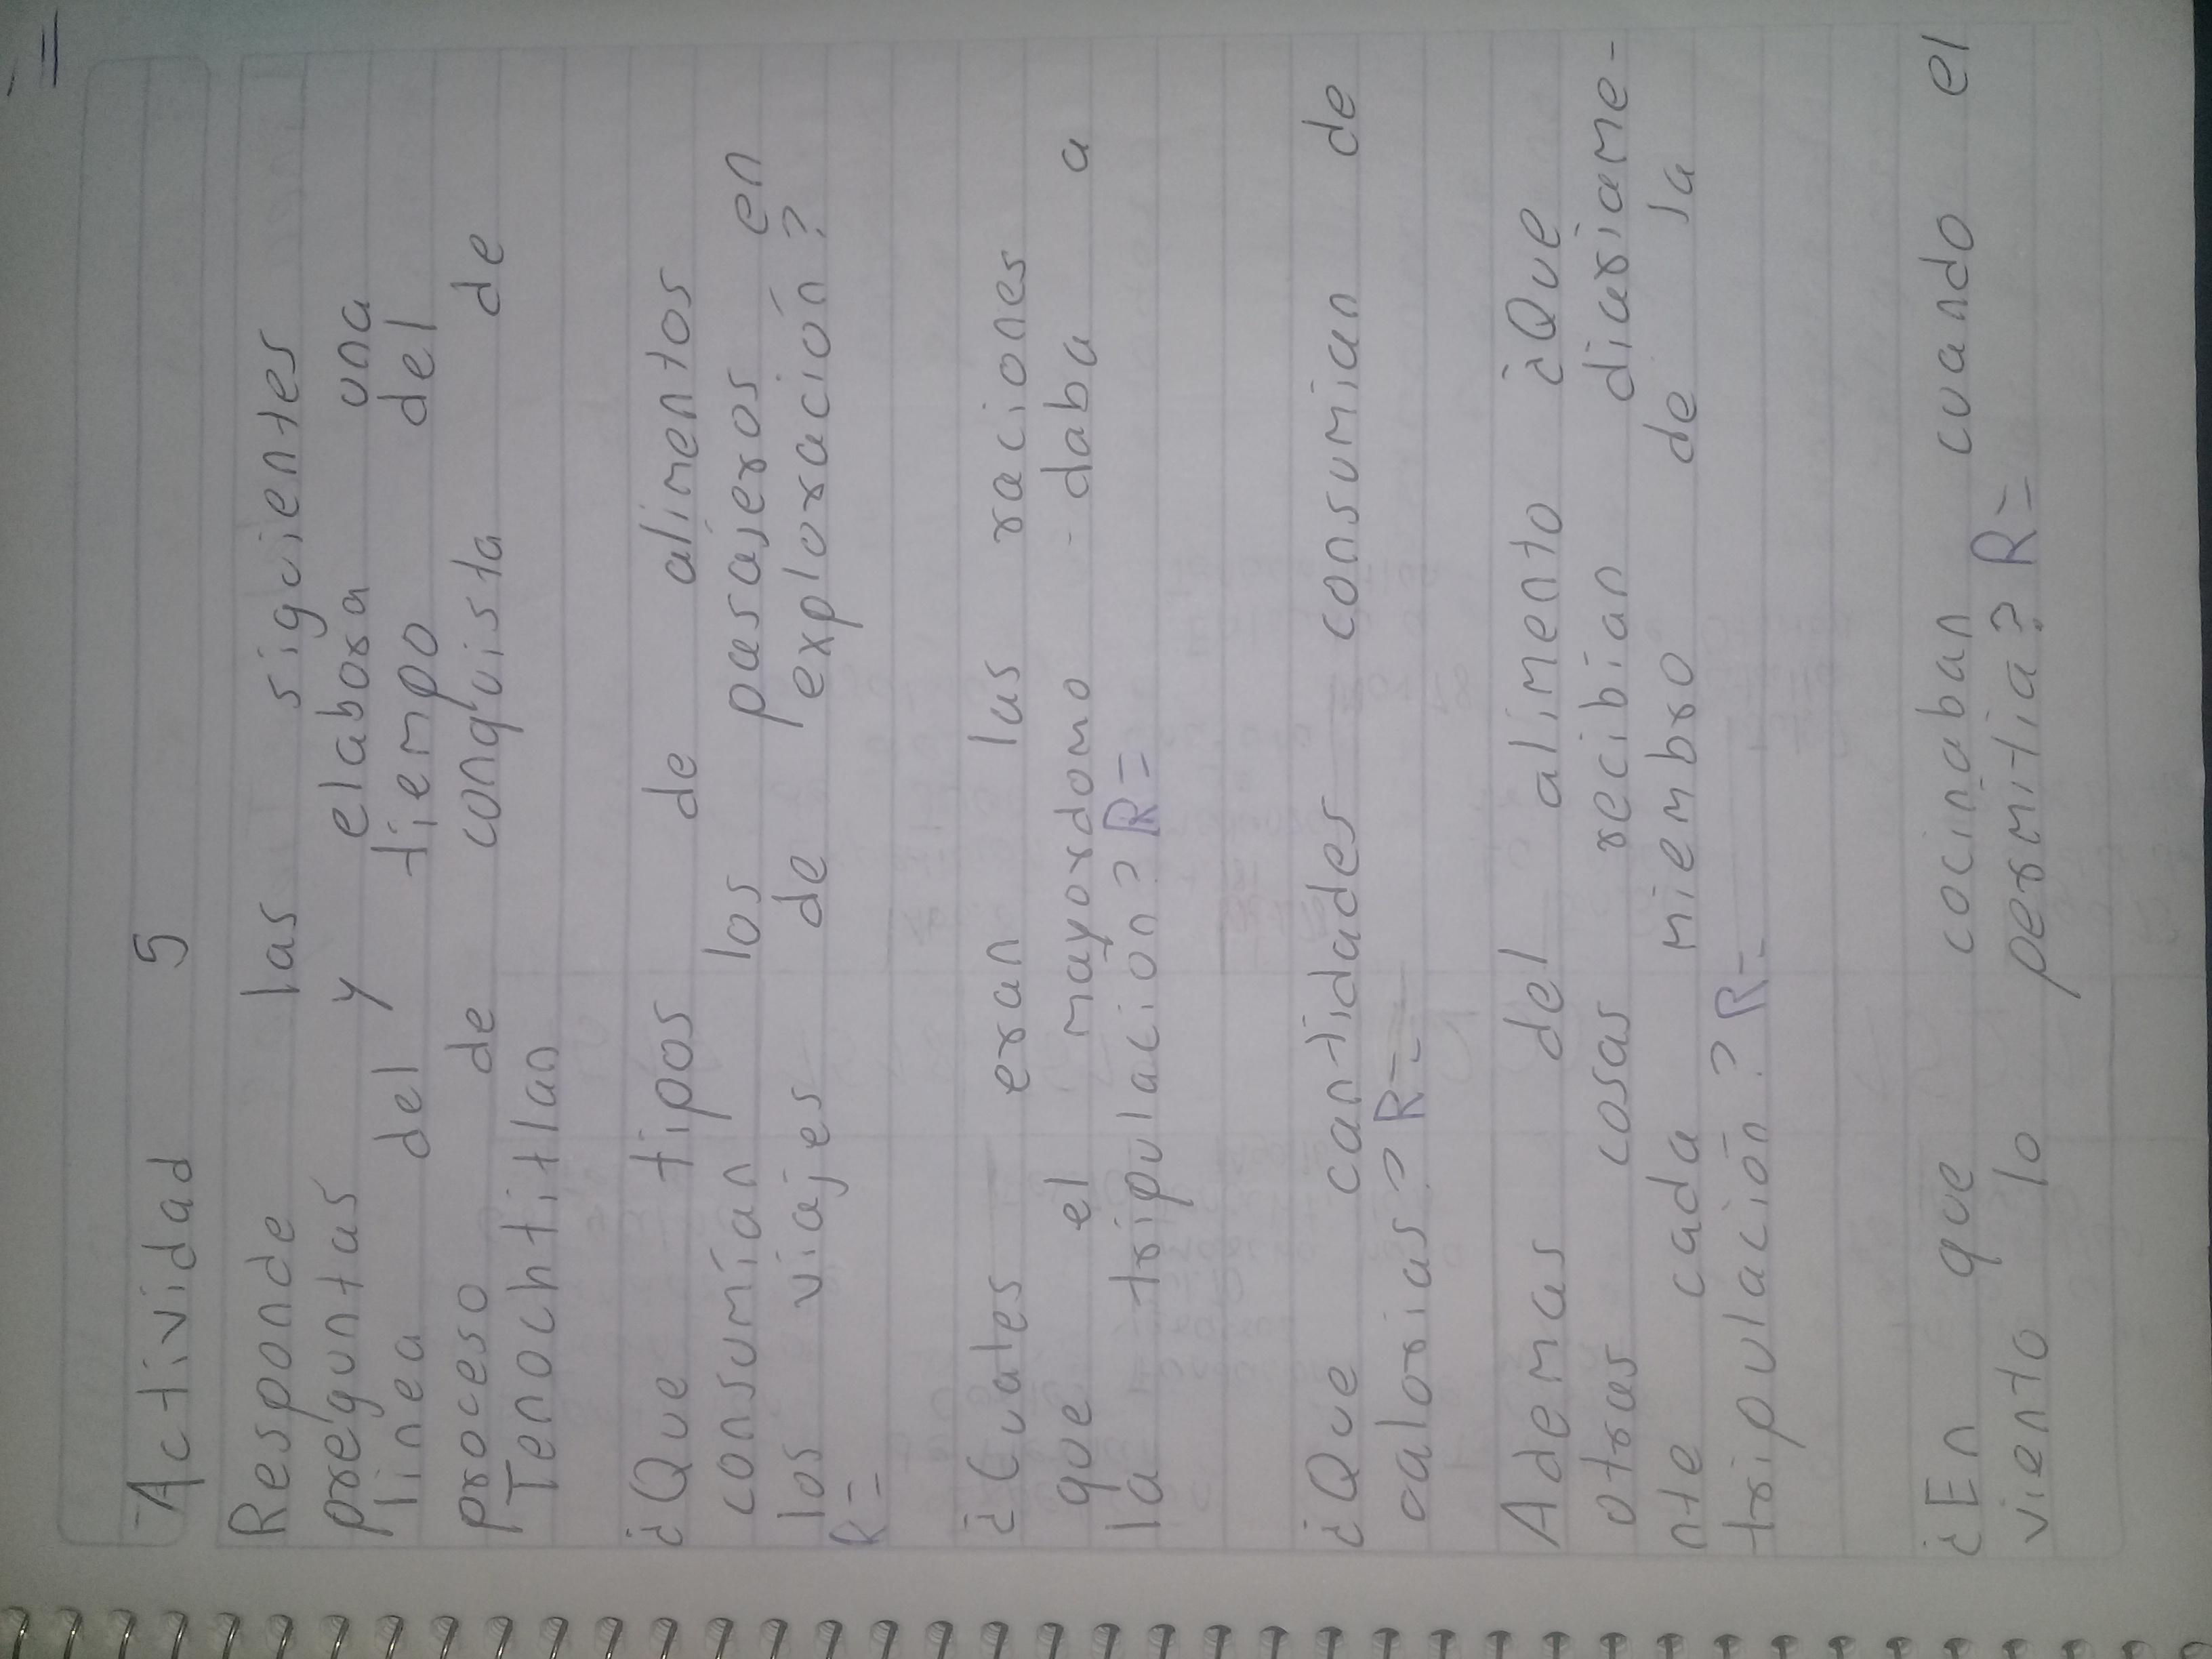 Actividad 5
Responde las siguientes
preguntas y elabora una
linea del tiempo del
proceso de conquista de
Tenochtitlan
¿Que tipos de alimentos
consumían los pasajeros en
los viajes de exploración?
R=
¿Cuales eran las raciones
que el mayordomo daba a
la tripulación? R=
¿Que cantidades consumian de
calorias? R=
Ademas del alimento ¿Que
otras cosas recibian diariame-
nte cada miembro de la
tripulación? R=
¿En que cocinaban cuando el
viento lo permitia? R=